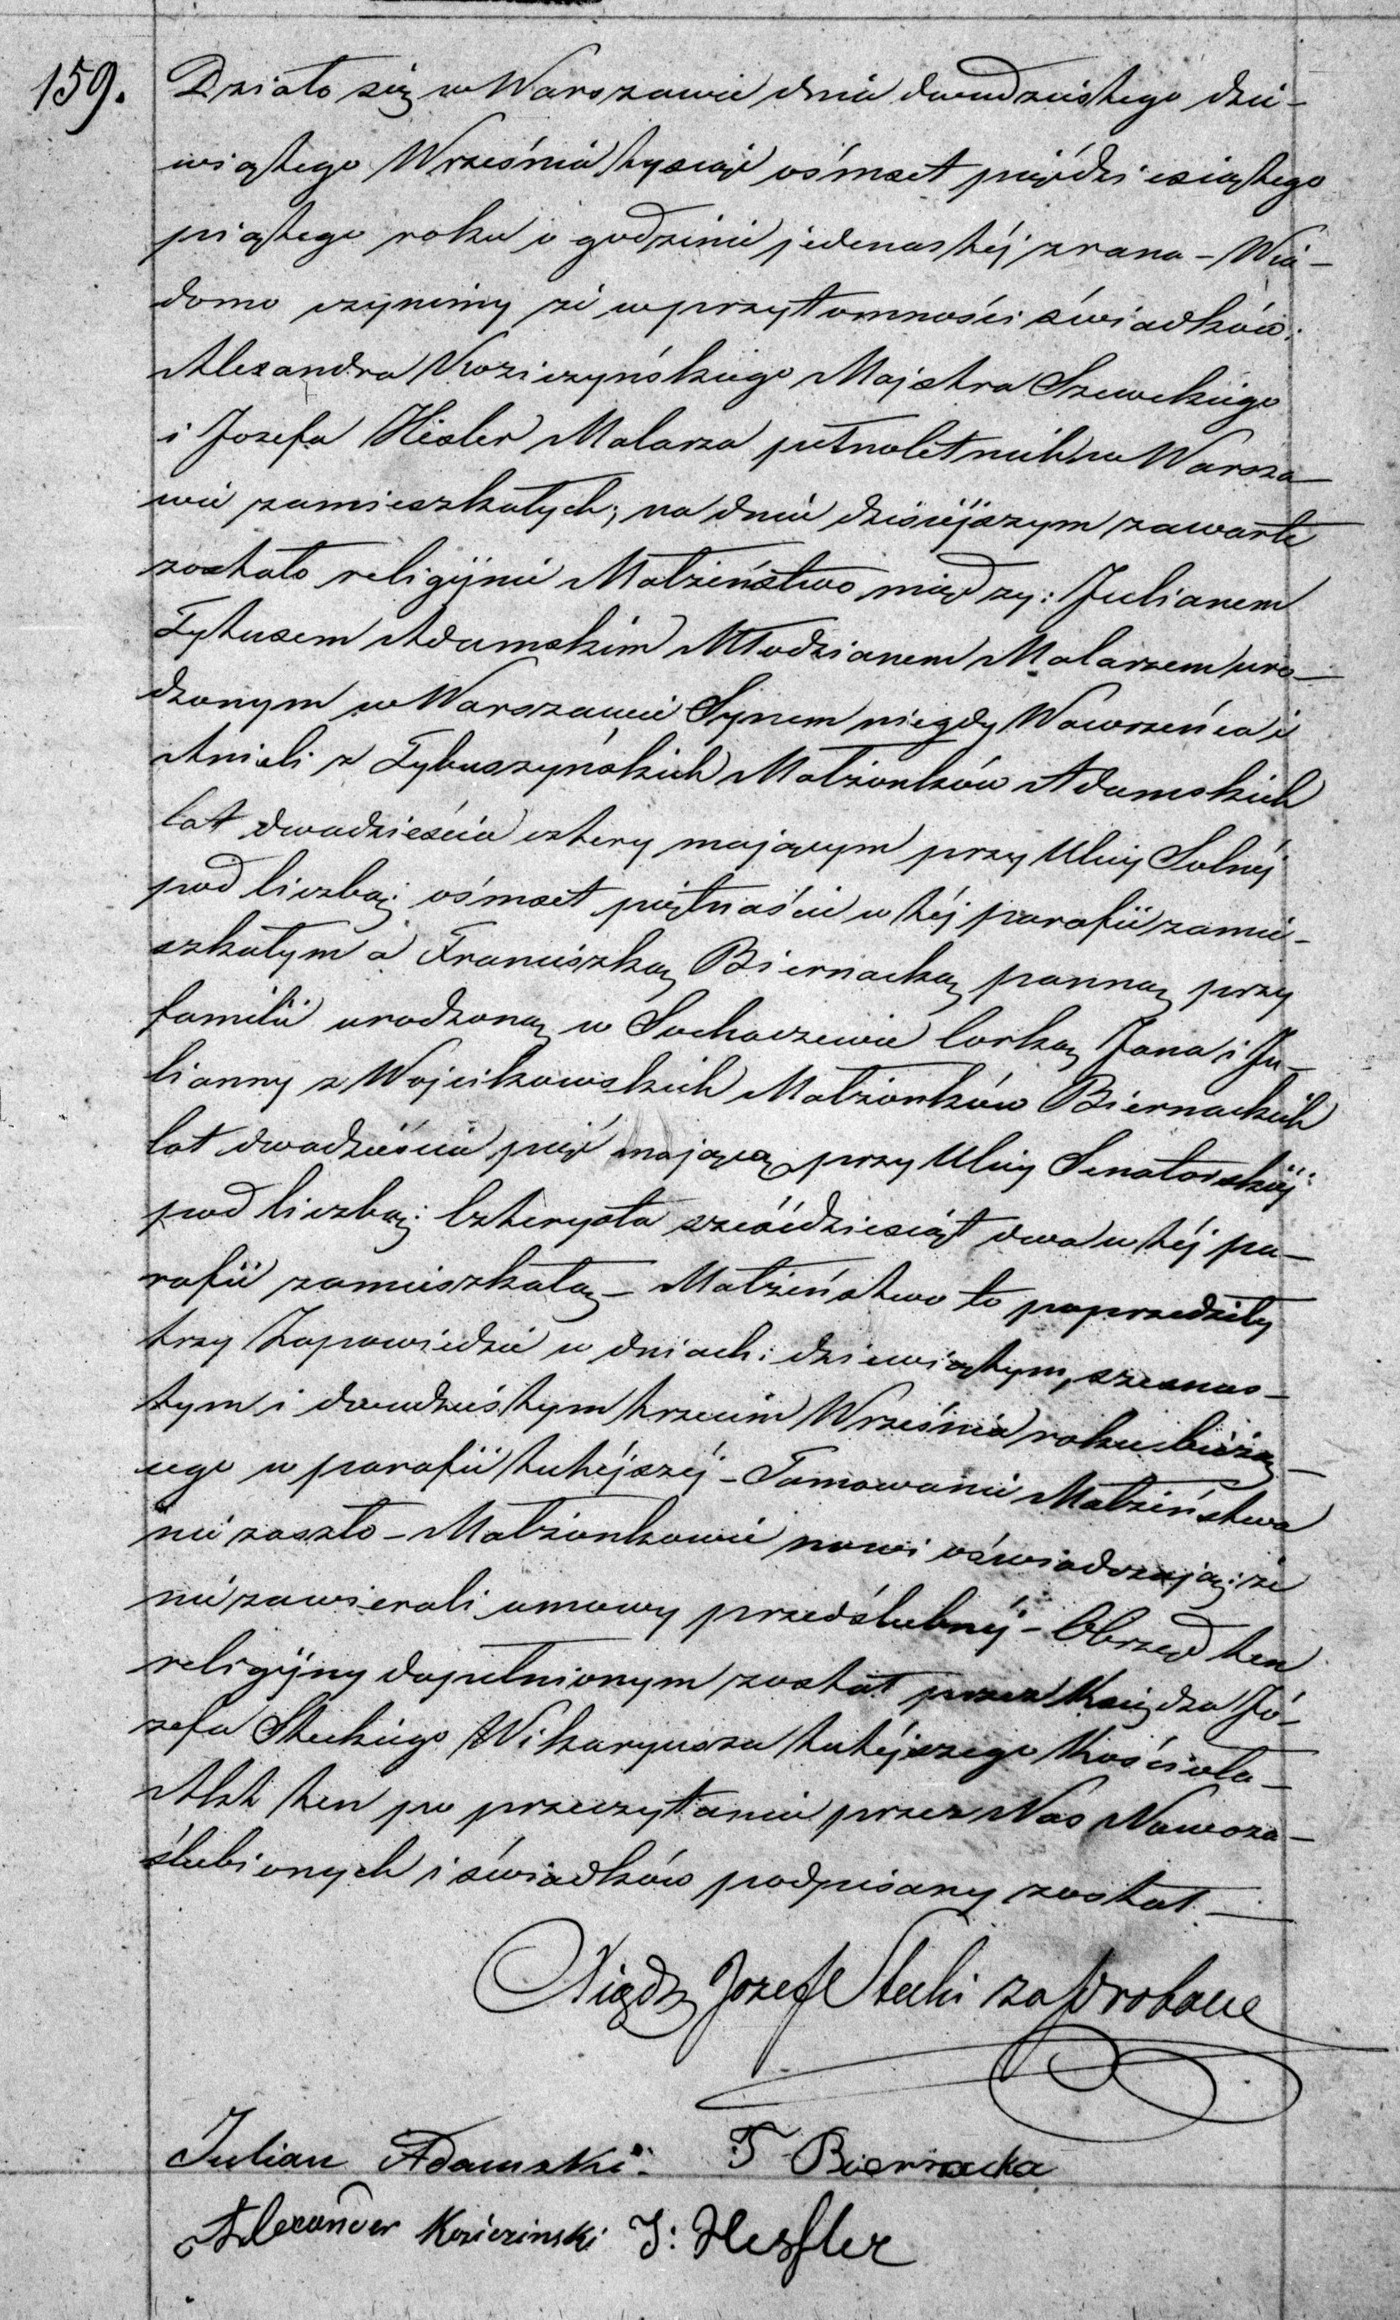 159.
Działo się w Warszawie dnia dwudziestego dzie-
wiątego Września tysiąc ośmset pięćdziesiątego
piątego roku o godzinie jedenastéj z rana – Wia-
domo czynimy że w przytomności świadków:
Alexandra Koziczyńskiego Majstra Szewckiego
i Jozefa Hesler Malarza pełnoletnich w Warsza-
wie zamieszkałych; na dniu dzisiéjszym zawarte
zostało religijnie Małżeństwo między: Julianem
Tytusem Adamskim Młodzianem Malarzem uro-
dzonym w Warszawie Synem niegdy Wawrzeńca i
Anieli z Tybuszyńskich Małżonków Adamskich
lat dwadzieścia cztery mającym przy Ulicy Solnéj
pod liczbą; ośmset piętnaście w téj parafii zamie-
szkałym a Franciszką Biernacką panną przy
familii urodzoną w Sochaczewie Corką Jana i Ju-
lianny z Wojcikowskich Małżonków Biernackich
lat dwadzieścia pięć mającą przy Ulicy Senatorskiéj:
pod liczbą; Czterysta sześćdziesiąt dwa w téj pa-
rafii zamieszkałą – Małżeństwo to poprzedziły
trzy Zapowiedzie w dniach: dziewiątym, szesnas-
tym i dwudziestym trzecim Września roku bieżą-
cego w parafii tutéjszéj – Tamowanie Małżeństwa
nie zaszło – Małżonkowie nowi oświadczają; że
nie zawierali umowy przedślubnéj – Obrzęd ten
religijny dopełnionym został przez Księdza Jó-
zefa Steckiego Wikaryusza tutéjszego Kościoła –
Akt ten po przeczytaniu przez Nas Nowoza-
ślubionych i świadków podpisany został –
Xiądz Jozef Stecki za Proboszcz
Julian Adamski. F Biernacka
Alexander Koziczinski J: Hessler